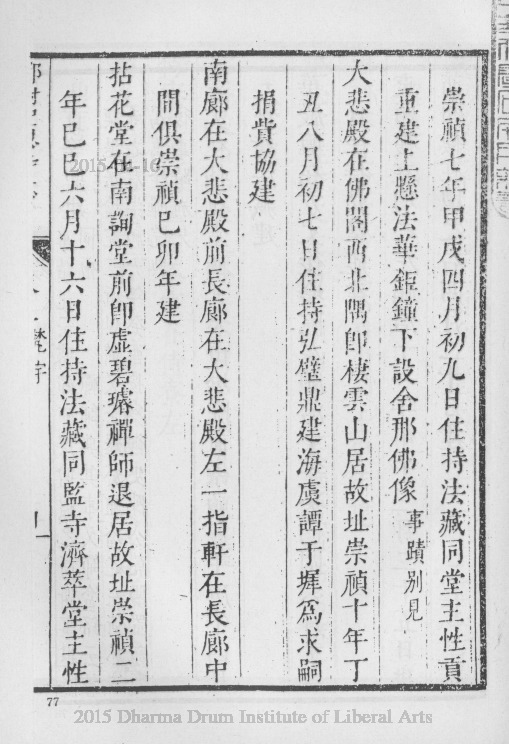 崇禎七年甲戌四月初九日住持法藏同堂主性貢
重建上懸法華鉅鐘下設舍那佛像事蹟别見
大悲殿在佛閣西北隅卽棲雲山居故址崇禎十年丁
丑八月初七日住持弘璧鼎建海虞譚于墀爲求嗣
捐貲協建
南廊在大悲殿前長廊在大悲殿左一指軒在長廊中
間俱崇禎己卯年建
拈花堂在南詢堂前卽虛碧璿禪師退居故址崇禎二
年己巳六月十六日住持法藏同監寺濟萃堂主性
77
2015 Dharma Drum Institute of Liberal Arts